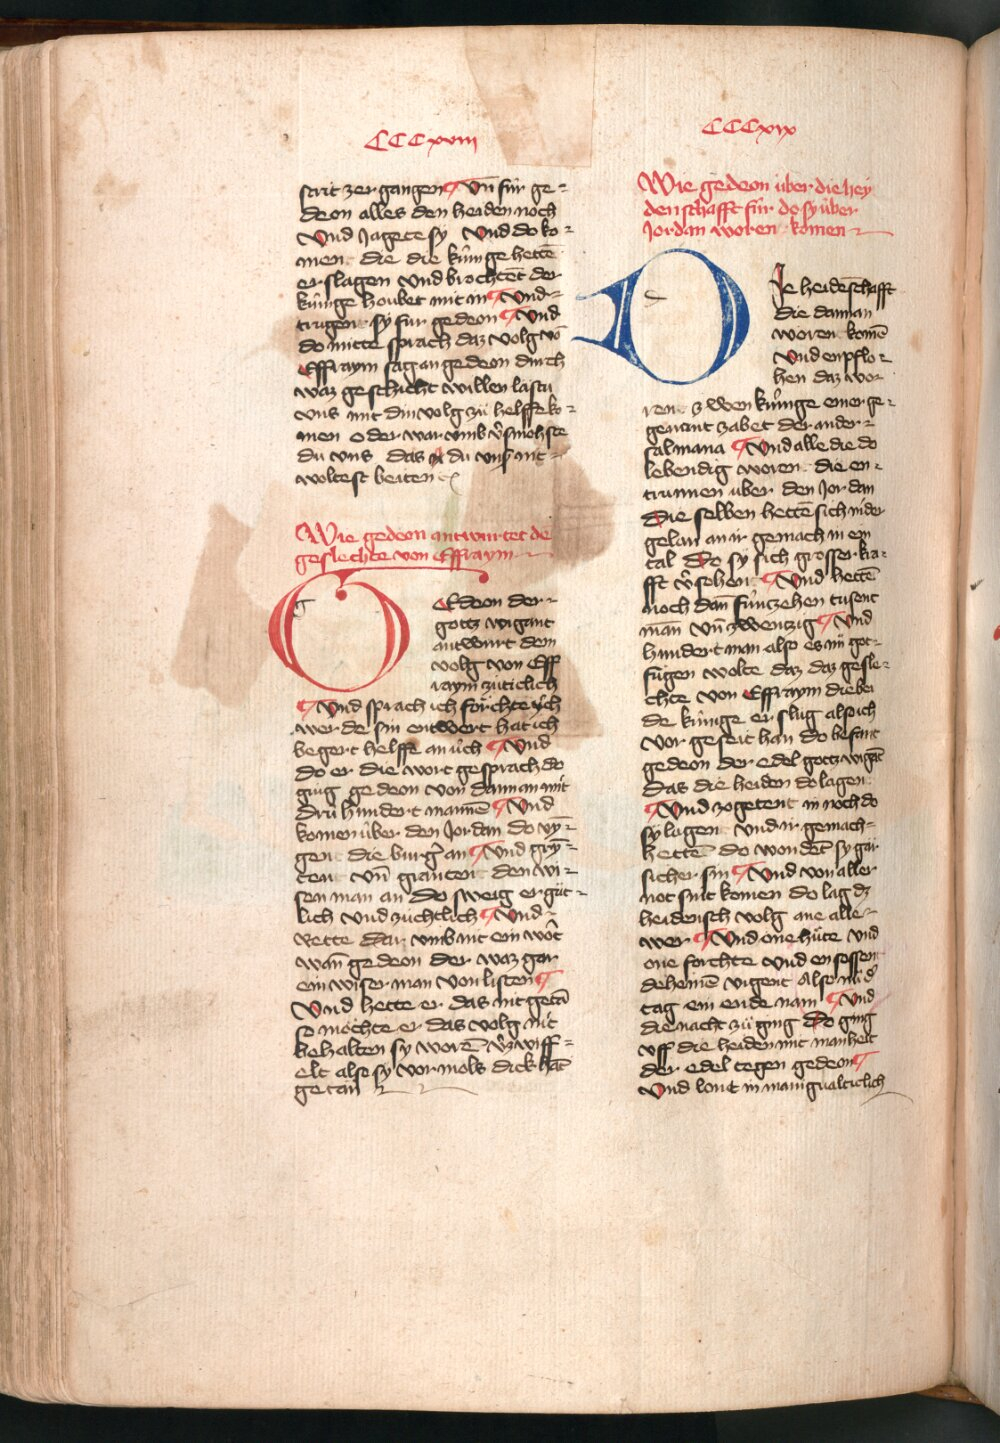 CCCxviii
strit zergangen Vn̄ für ge⸗
deon alles den heiden noch
Vnd Jagete sy Vnd do ko⸗
men die die kúnige hettē
erslagen vnd brochtēt der
kúnige houbet mit in Vnd⸗
trugent sy fur gedeon Vnd
do mitte sprach daz volg vō
Effraym sag an gedeon durch
waz geschicht willen lastu
vns mit din volg zů helffe ko⸗
men oder war vmb v̓smohste
du vns das du vnß nit⸗
woltest beiten
Wie gedeon antwurtet dē
geslechte von Effraym
G
Edeon der⸗
gottz wigant
antwurt dem
volg von Eff
raym zúticlich
Vnd sprach ich förchte v́ch
wer de sin entwert hat ich
begert helffe an úch Vnd
do er die wort gesprach do
ging gedeon von dannan mit
drú hundert mannē Vnd
komen úber den Jordan do vȳ⸗
gent die burg̓ an Vnd grÿ⸗
tent vn̄ granten den wi⸗
sen man an do sweig er güt⸗
lich vnd zúchtlich Vnd⸗
rette dar vmb nit ein wōt
wan̄ gedeon der waz gar
ein wiser man von listen
Vnd hette er das nit getā
so möchte er das volg nit
behalten sy worē v̓zwiff⸗
elt also sy vormols dick hāt
getan
CCCxix
Wie gedeon über die hey
denschafft für do sy über
Jordan woren komen
D
Je heidēschafft
die dannan
woren komē
vnd enpflo⸗
hen daz wor
rent zwen kúnige einer ge⸗
genant zabet der ander⸗
salmana Vnd alle die do
lebendig woren die en⸗
trunnen über den Jordan
Die selben hettē sich nider
gelan an ir gemach in ein
tal Do sy sich grosser kra⸗
fft v̓sehent Vnd hettē
noch dan̄ fúnczehen tusent
man̄ vn̄ zwentzig Vnd
hundert man also es im̄ got⸗
fügen wolte daz daz gesle⸗
chte von Effraym die bei
de kúnige erslug als ich
vor geseit han do befant
gedeon der edel gottz wigāt
Das die heiden do lagen
Vnd zogetent in noch do
sy lagen vnd ir gemach⸗
hettē do wondēt sy gar
sicher sin Vnd von aller
not sint komen do lag dz
heidensch volg ane alle⸗
wer Vnd one hüte vnd
one forchte vnd en sossent
deheinē vigent Also nū d̓
tag ein ende nam Vnd
die nacht zů ging Do ging
vff die heiden mit manheit
der edel tegen gedeon
Vnd lout in manigualticlich